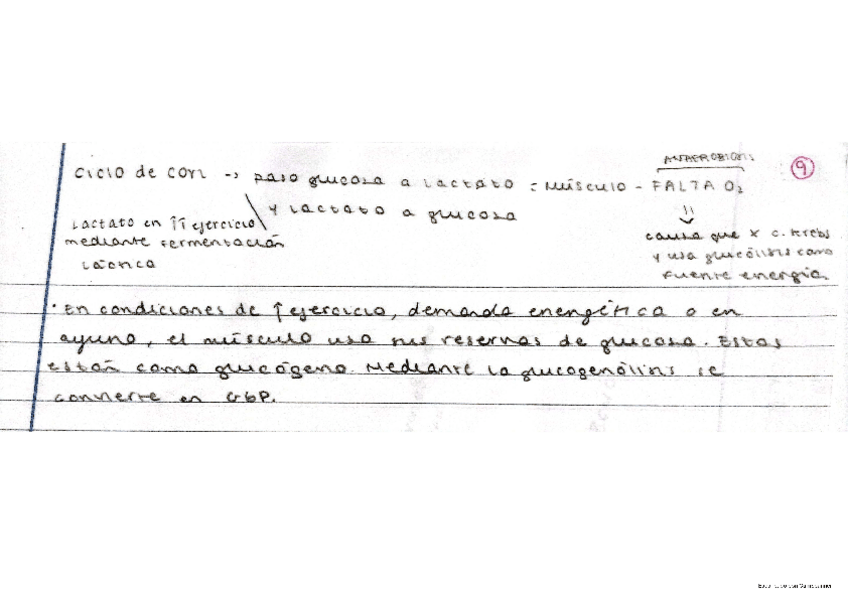 ANAEROBIOSIS
9
Ciclo de cori -> paso glucosa a lactato = músculo - FALTA O₂
y lactato a glucosa
Lactato en ↑↑ ejercicio
mediante fermentación
láctica
causa que x c. krebs
y usa glucólisis como
fuente energía.
· En condiciones de ↑ ejercicio, demanda energética o en
ayuno, el músculo usa sus reservas de glucosa. Estas
están como glucógeno. Mediante la glucogenólisis se
convierte en G6P.